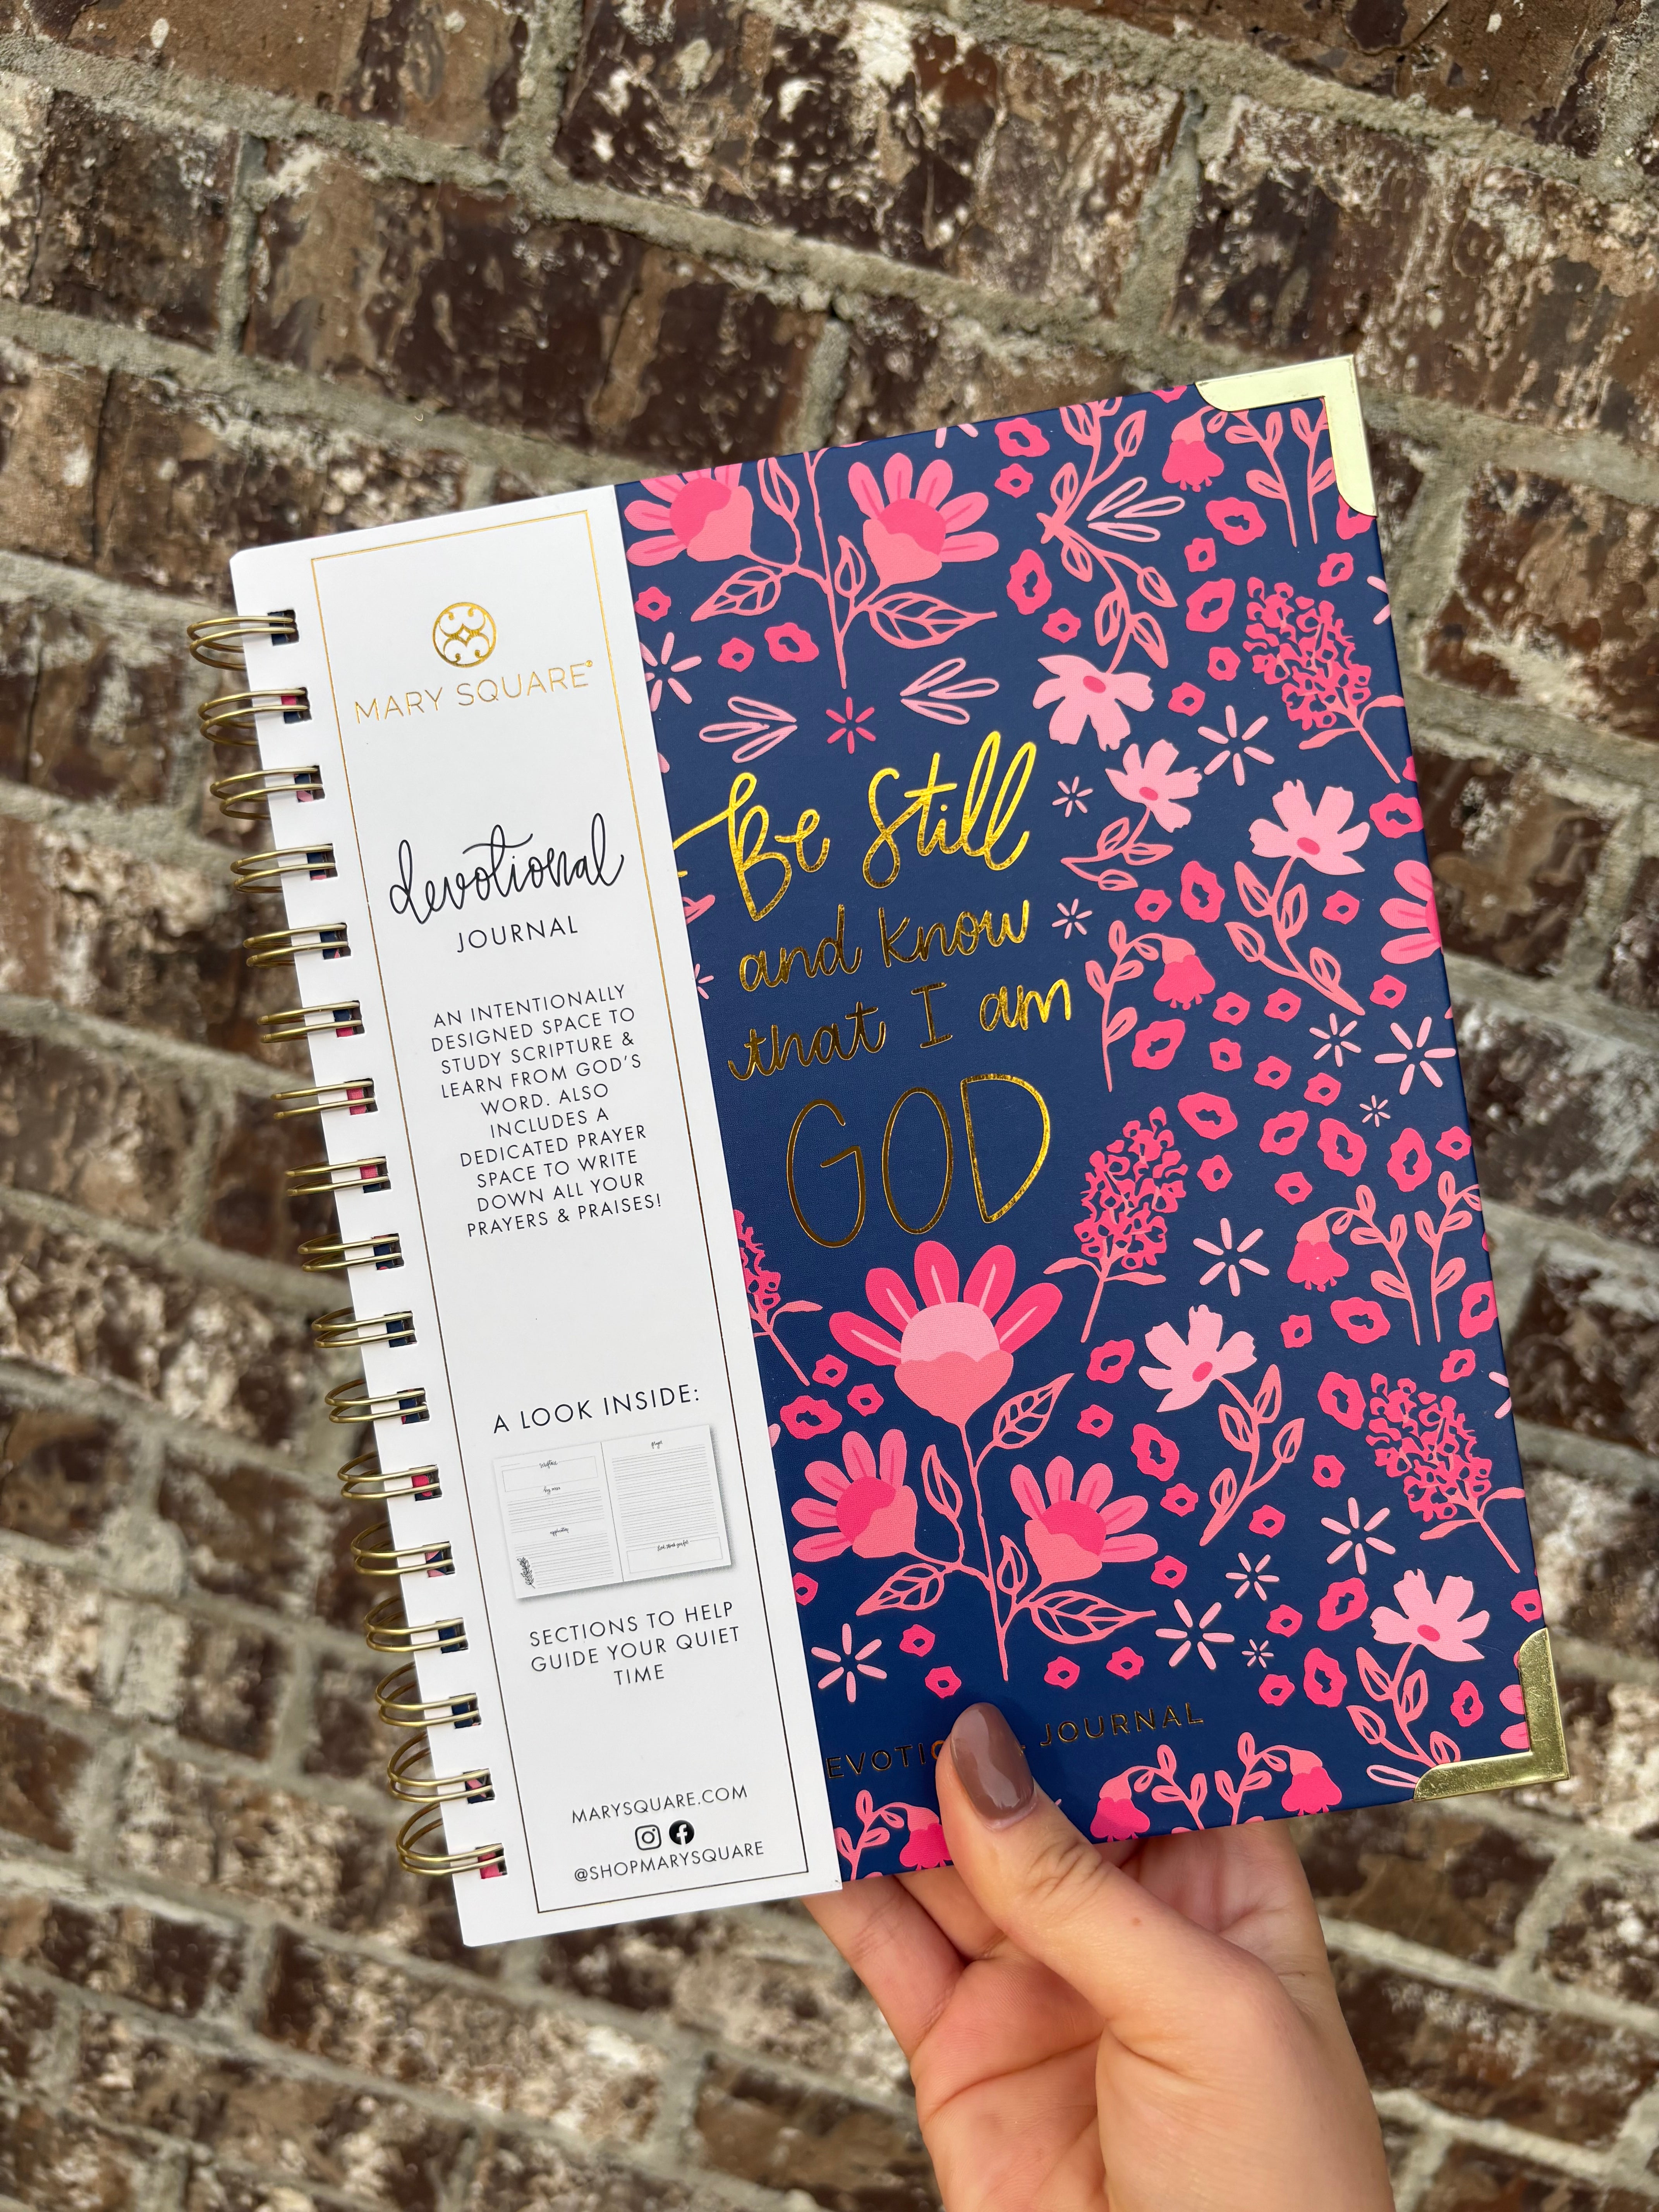 MARY SQUARE®
devotional
JOURNAL
AN INTENTIONALLY
DESIGNED SPACE TO
STUDY SCRIPTURE &
LEARN FROM GOD'S
WORD. ALSO
INCLUDES A
DEDICATED PRAYER
SPACE TO WRITE
DOWN ALL YOUR
PRAYERS & PRAISES!
A LOOK INSIDE:
scripture
key verse
application
prayer
SECTIONS TO HELP
GUIDE YOUR QUIET
TIME
MARYSQUARE.COM
@SHOPMARYSQUARE
Be Still
and know
that I am
GOD
JOURNAL